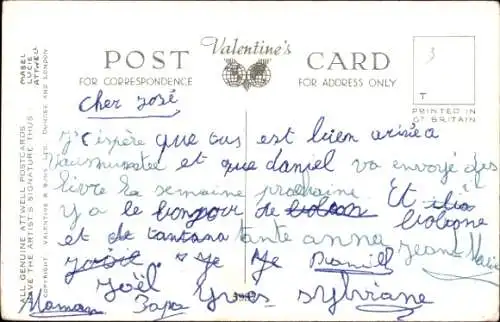 POST Valentine's CARD
FOR CORRESPONDENCE FOR ADDRESS ONLY
3
T
PRINTED IN
GT BRITAIN
MABEL
LUCIE
ATTWELL
ALL GENUINE ATTWELL POSTCARDS
HAVE THE ARTIST'S SIGNATURE THUS:
COPYRIGHT. VALENTINE & SONS, LTD. DUNDEE AND LONDON
Cher José
J'éspère que tus est bien arivée a
et que daniel va envoyé des
livre la semaine prochaine Et
Y a le bonjour de bologne
et de tantana tante anna Jeanne Marie
Je Je Daniel
Joël Yves Sylviane
Maman Papa